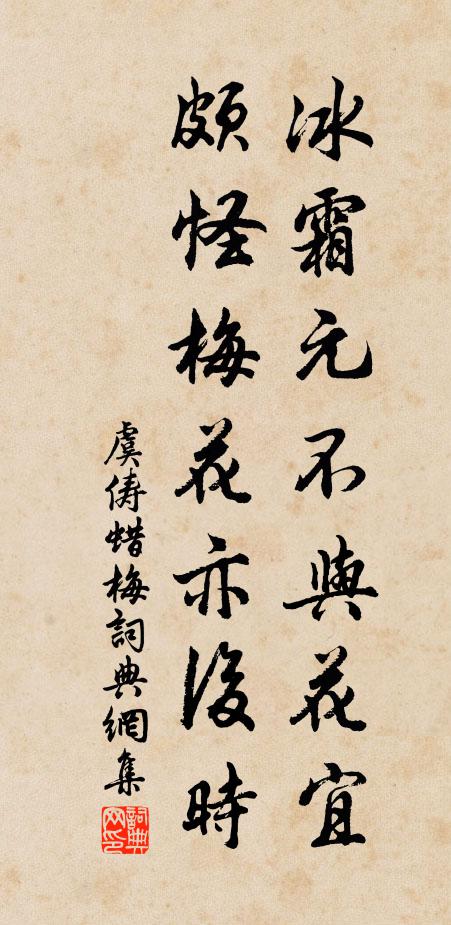 冰霜元不與花宜
頗怪梅花亦後時
虞儔蜡梅詞典網集
詞典
网印